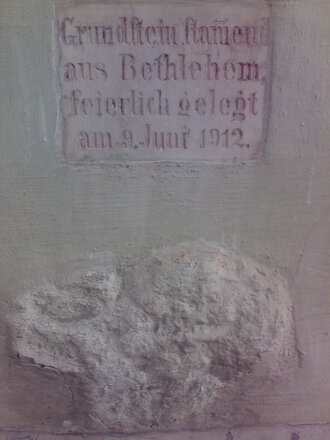 Grundstein, stam̅end
aus Bethlehem,
feierlich gelegt
am 9. Juni 1912.